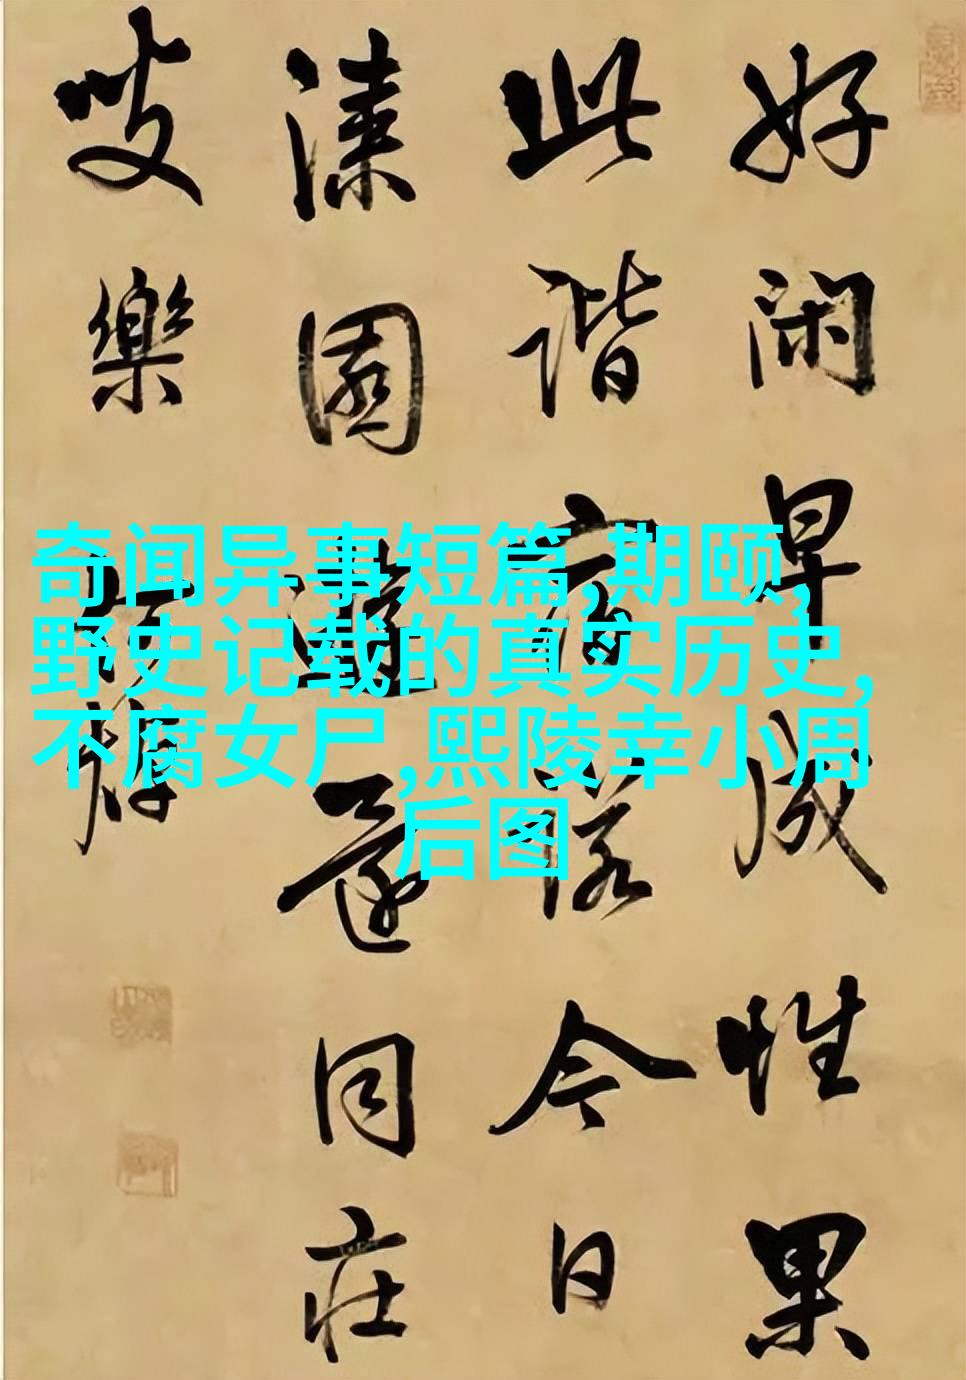 好闲早成性果
此谐宿诺今日
漆園遊還同庄
叟樂
奇闻异事短篇,期颐,
野史记载的真实历史,
不腐女尸,熙陵幸小周
后图